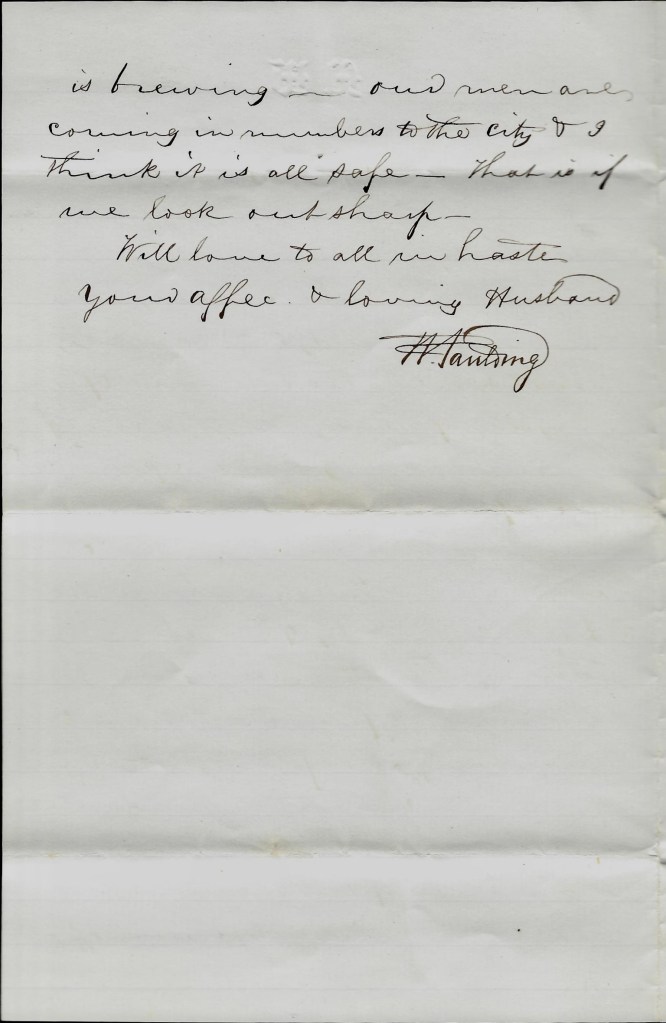 is brewing — our men are
coming in numbers to the city & I
think it is all safe — that is if
we look out sharp —
Will love to all in haste
Your affec. & loving Husband
W. Paulding